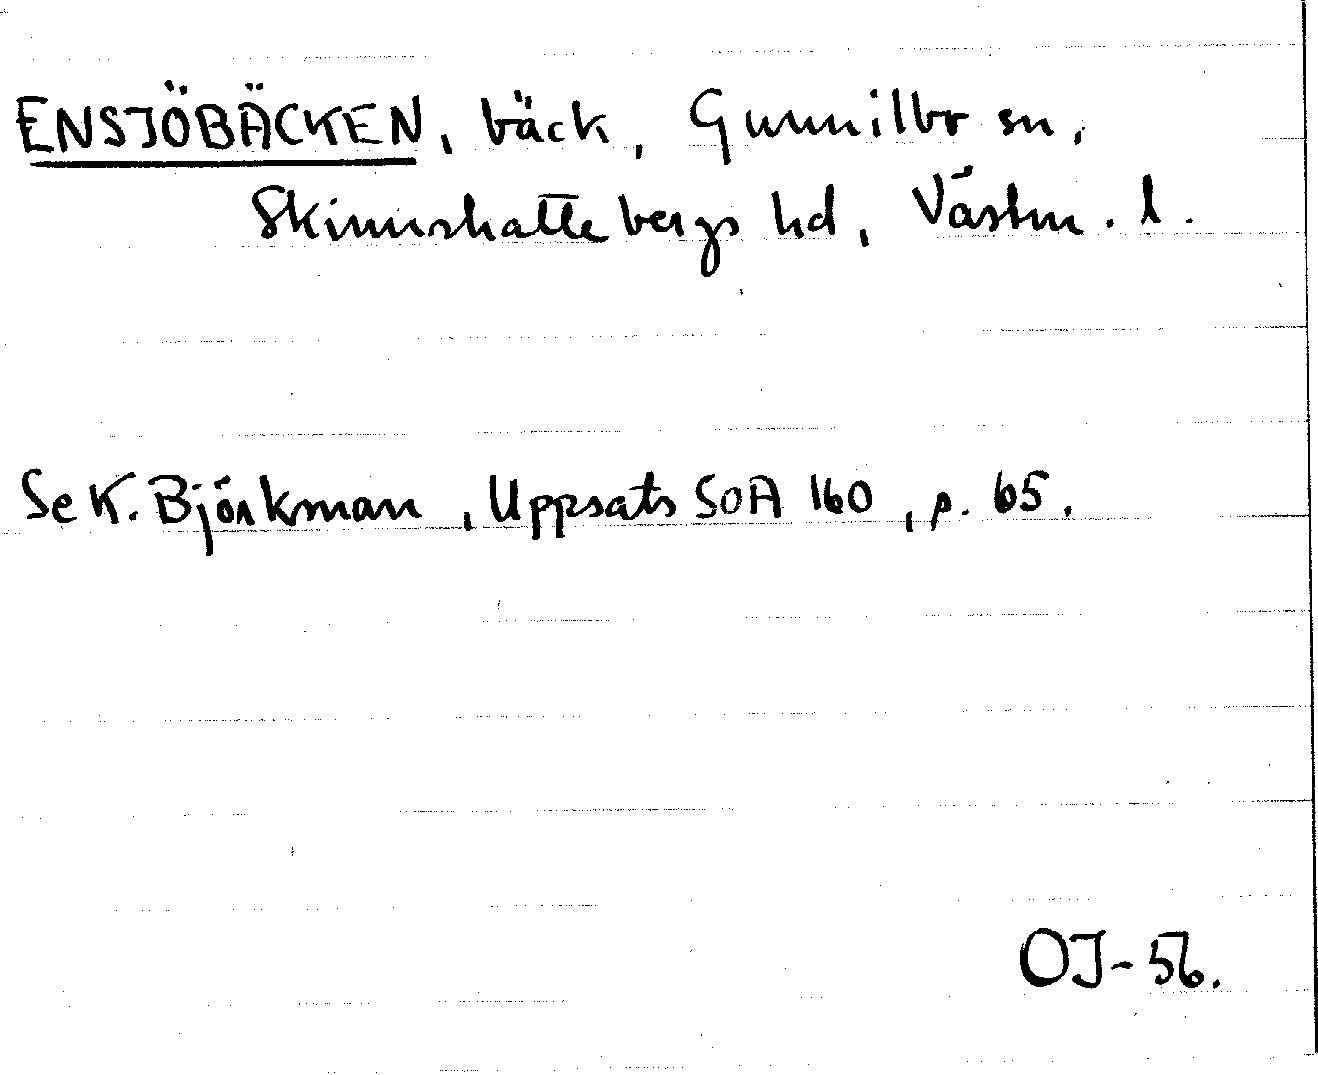 ENSJÖBÄCKEN, bäck, Gunnilbo sn,
Skinnskattebergs hd, Västm. l.
Se K. Björkman, Uppsats SOA 160, p. 65.
OJ-56.